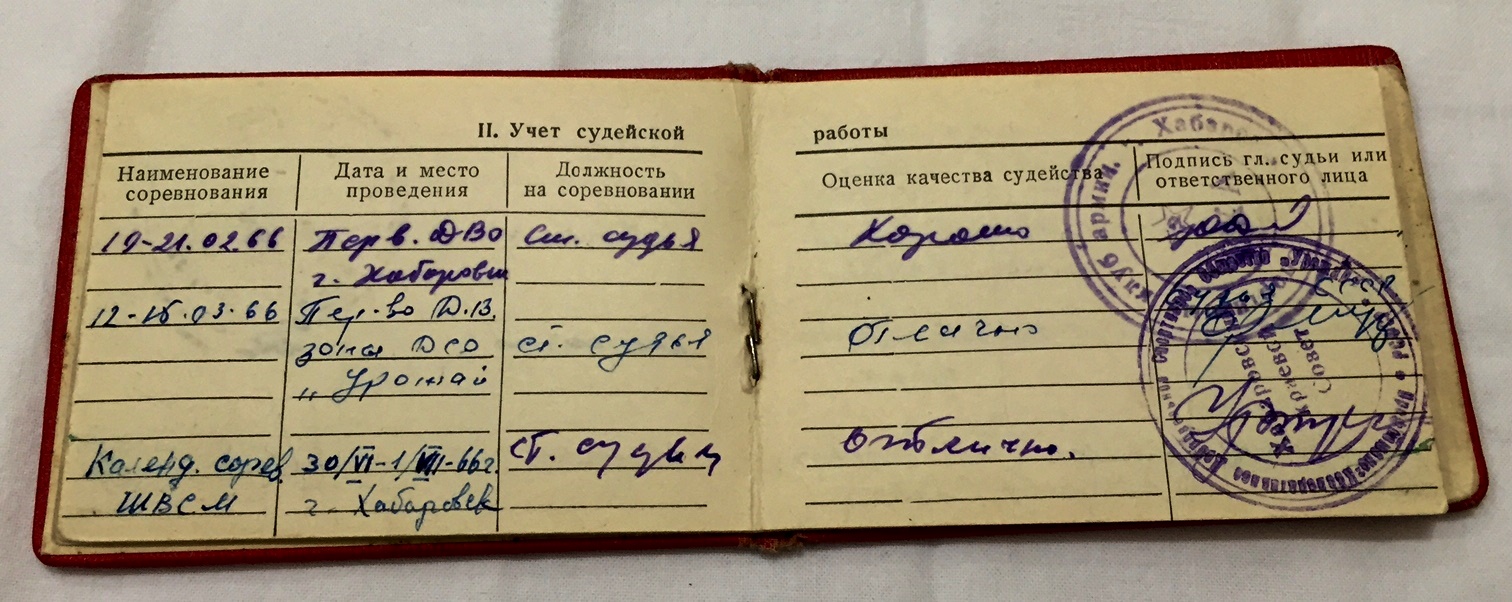 II. Учет судейской работы
Наименование соревнования
Дата и место проведения
Должность на соревновании
Оценка качества судейства
Подпись гл. судьи или ответственного лица
19-21.02.66 Перв. ДВО ст. судья Хорошо
г. Хабаровск
12-15.03.66 Пер-во Д.В. Отлично Судья СССР
зоны ДСО ст. судья
„Урожай
Календ. сорев. 30/VI-1/VII-66г. ст. судья отлично.
ШВСМ г. Хабаровск
клуб армии. г. Хабаро
Добровольное спортивное общество „Урожай"
Хабаровский
краевой
Совет